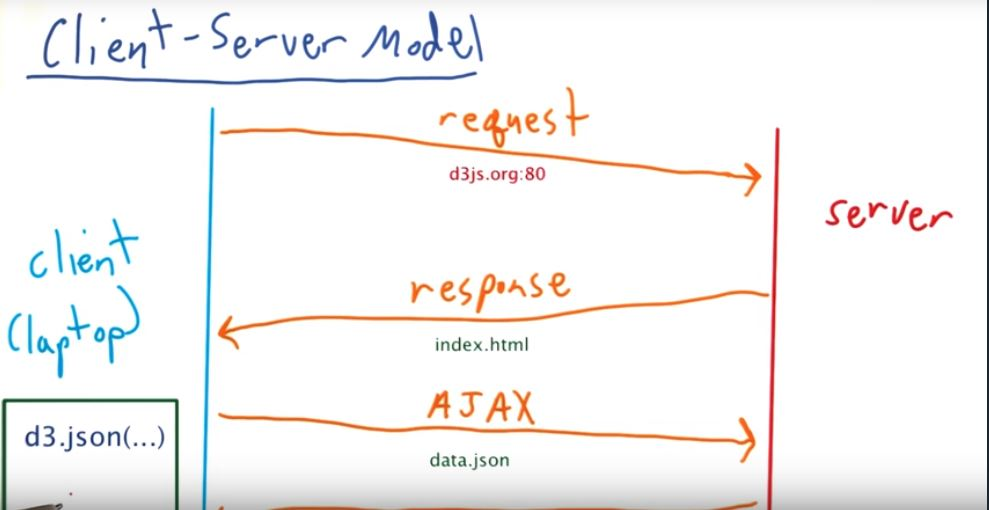 Client-Server Model
request
d3js.org:80
server
client
(laptop)
response
index.html
AJAX
data.json
d3.json(...)